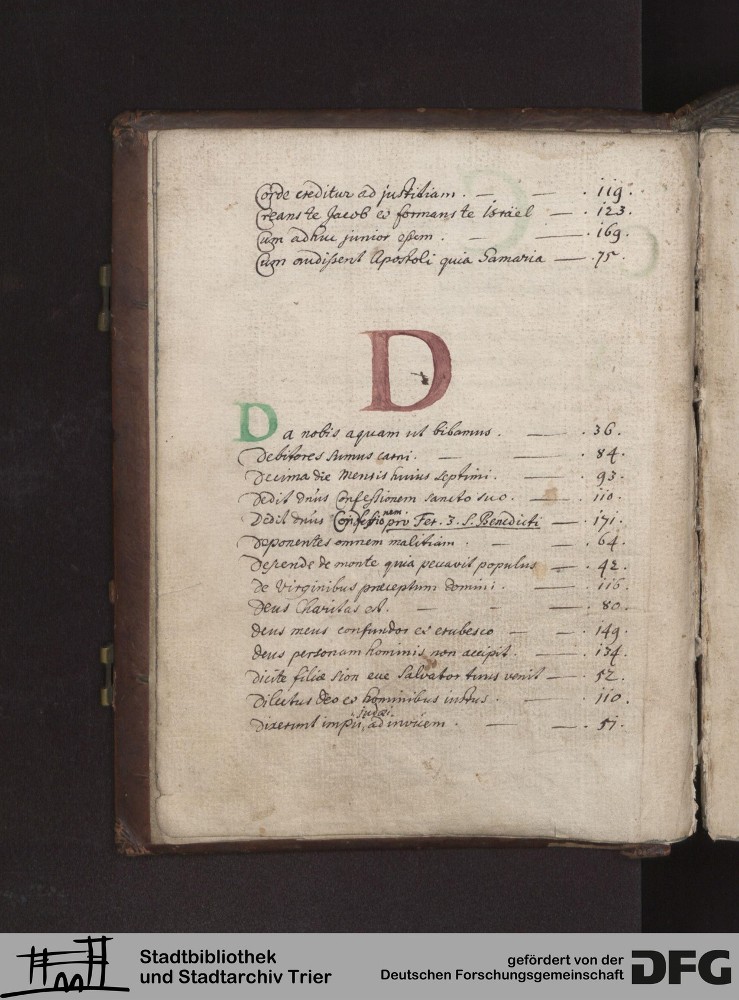 Corde creditur ad justitiam. — — . 119.
Creans te Jacob et formans te Israël — . 123.
Cum adhuc junior essem. — — . 169.
Cum audissent Apostoli quia Samaria — . 75.
D
Da nobis aquam ut bibamus. — . 36.
Debitores sumus carni. — — . 84.
Decima die mensis huius septimi. — . 93.
Dedit dnus Confessionem sancto suo. — . 110.
Dedit dnus Confessionem pro Fer. 3. S. Benedicti — . 171.
Deponentes omnem malitiam. — — . 64.
Descende de monte quia peccavit populus — . 42.
de Virginibus præceptum domini. — . 116.
Deus Charitas est. — — — . 80.
Deus meus confundor et erubesco — — . 149.
Deus personam hominis non accipit. — . 134.
Dicite filiæ Sion ecce Salvator tuus venit — . 52.
Dilectus Deo et hominibus . — . 110.
Judæi
Dixerunt impii, ad invicem. — — . 51.
Stadtbibliothek
und Stadtarchiv Trier
gefördert von der
Deutschen Forschungsgemeinschaft
DFG